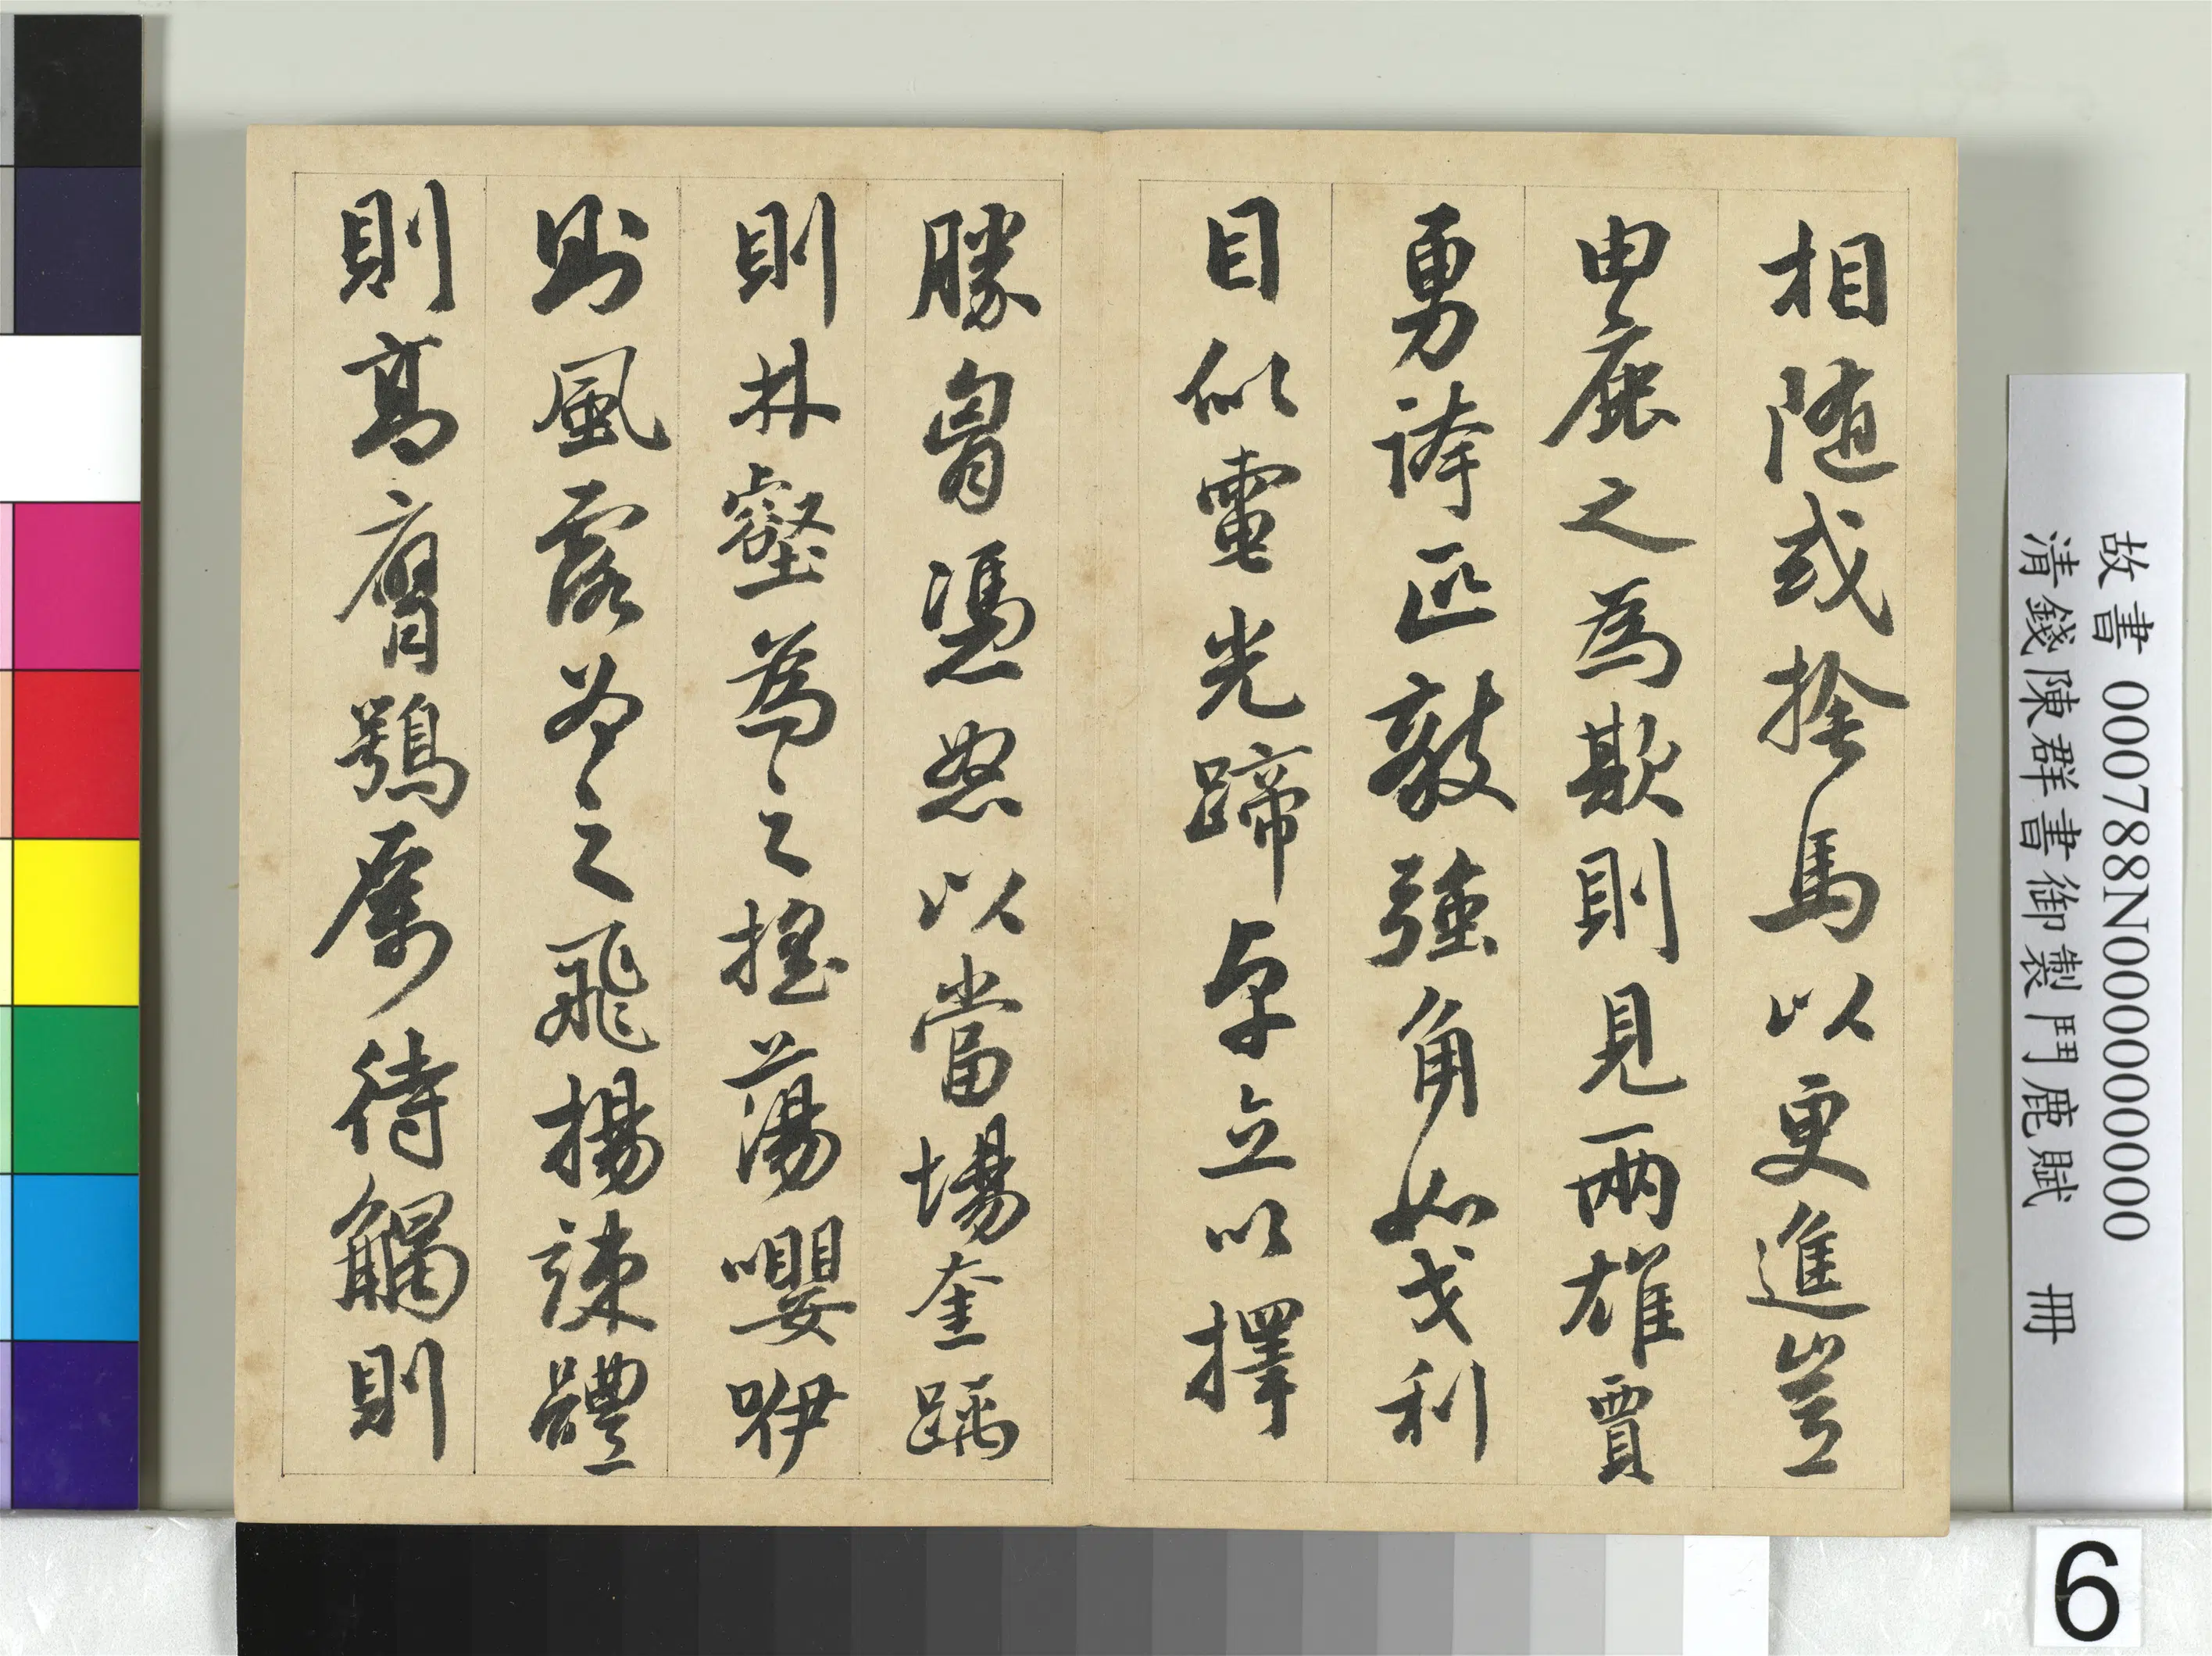 相随或捨馬以更進豈
由鹿之為欺則見兩雄賈
勇誇匹敵強角如戈利
目似電光蹄卓立以擇
勝胷憑怒以當場奎踽
則林壑為之搖蕩嚶咿
則風露為之飛揚竦體
則高膺鶚厲待觸則
故書 000788N000000000
清錢陳群書御製鬥鹿賦 冊
6